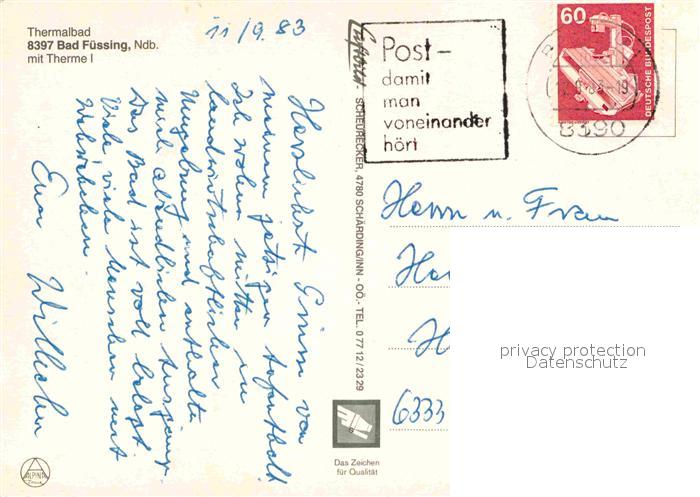 Thermalbad
8397 Bad Füssing, Ndb.
mit Therme I
11/9.83
Herzlichst Grüsse von
meinem jetzigen Aufenthalt
Ich wohne mitten in
landwirtschaftlicher
Umgebung und
Das Bad ist voll belegt.
Viele, viele Menschen mit
Wehwehchen.
Euer
Luftbild - SCHEURECKER, 4780 SCHÄRDING/INN - OÖ. - TEL. 0 77 12 / 23 29
Das Zeichen
für Qualität
ALPINA
Post-
damit
man
voneinander
hört
60
DEUTSCHE BUNDESPOST
8390
Herrn u. Frau
6333
privacy protection
Datenschutz